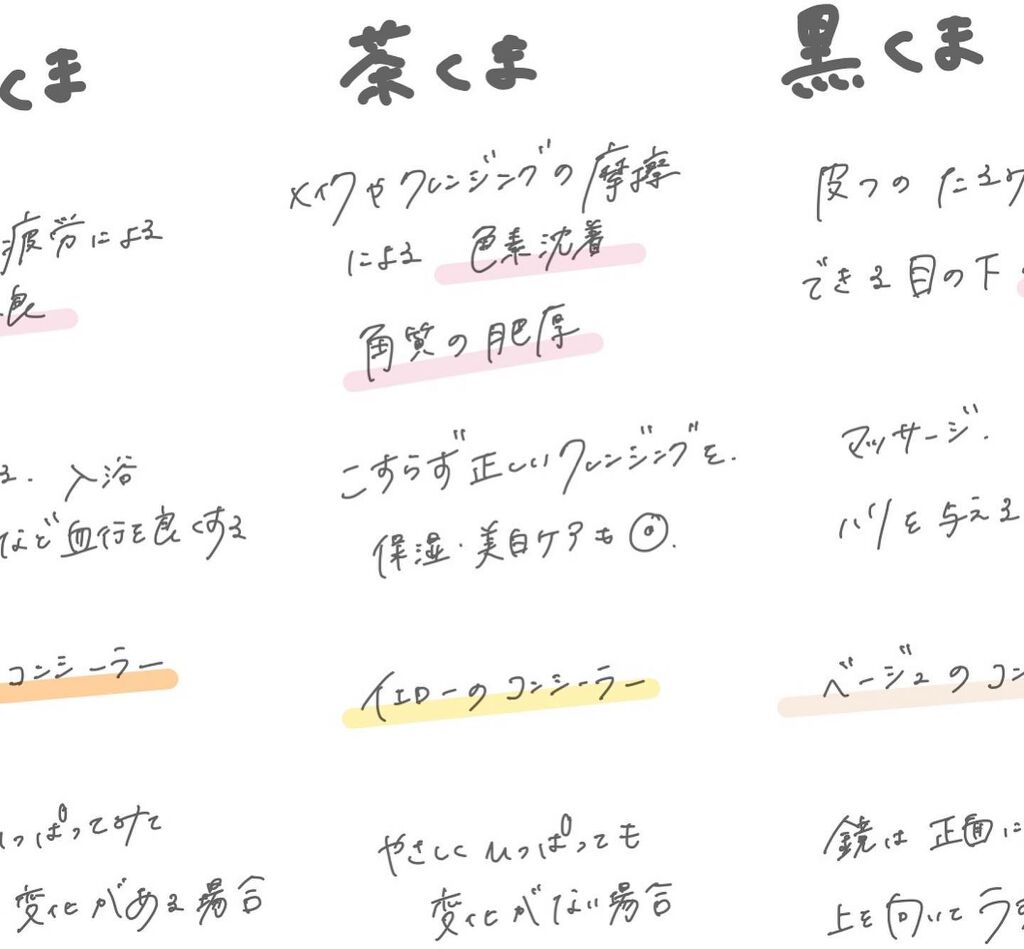 くま
疲労による
良
入浴
など血行を良くする
コンシーラー
っぱってみて
変化がある場合
茶くま
メイクやクレンジングの摩擦
による 色素沈着
角質の肥厚
こすらず正しいクレンジングを.
保湿・美白ケアも◎.
イエローのコンシーラー
やさしくひっぱっても
変化がない場合
黒くま
皮フのたるみ
できる目の下
マッサージ.
ハリを与える
ベージュのコン
鏡は正面に
上を向いて